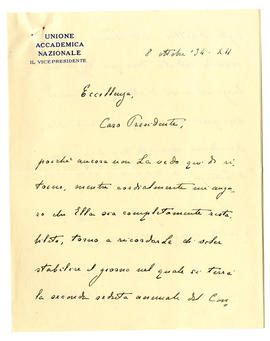 UNIONE
ACCADEMICA
NAZIONALE
IL VICEPRESIDENTE
8 ottobre '34 - XII
Eccellenza,
Caro Presidente,
poichè ancora non La vedo qui di ri
torno, mentre cordialmente mi augu
ro che Ella sia completamente rista
bilito, torno a ricordarLe di voler
stabilire il giorno nel quale si terrà
la seconda seduta annuale del Con